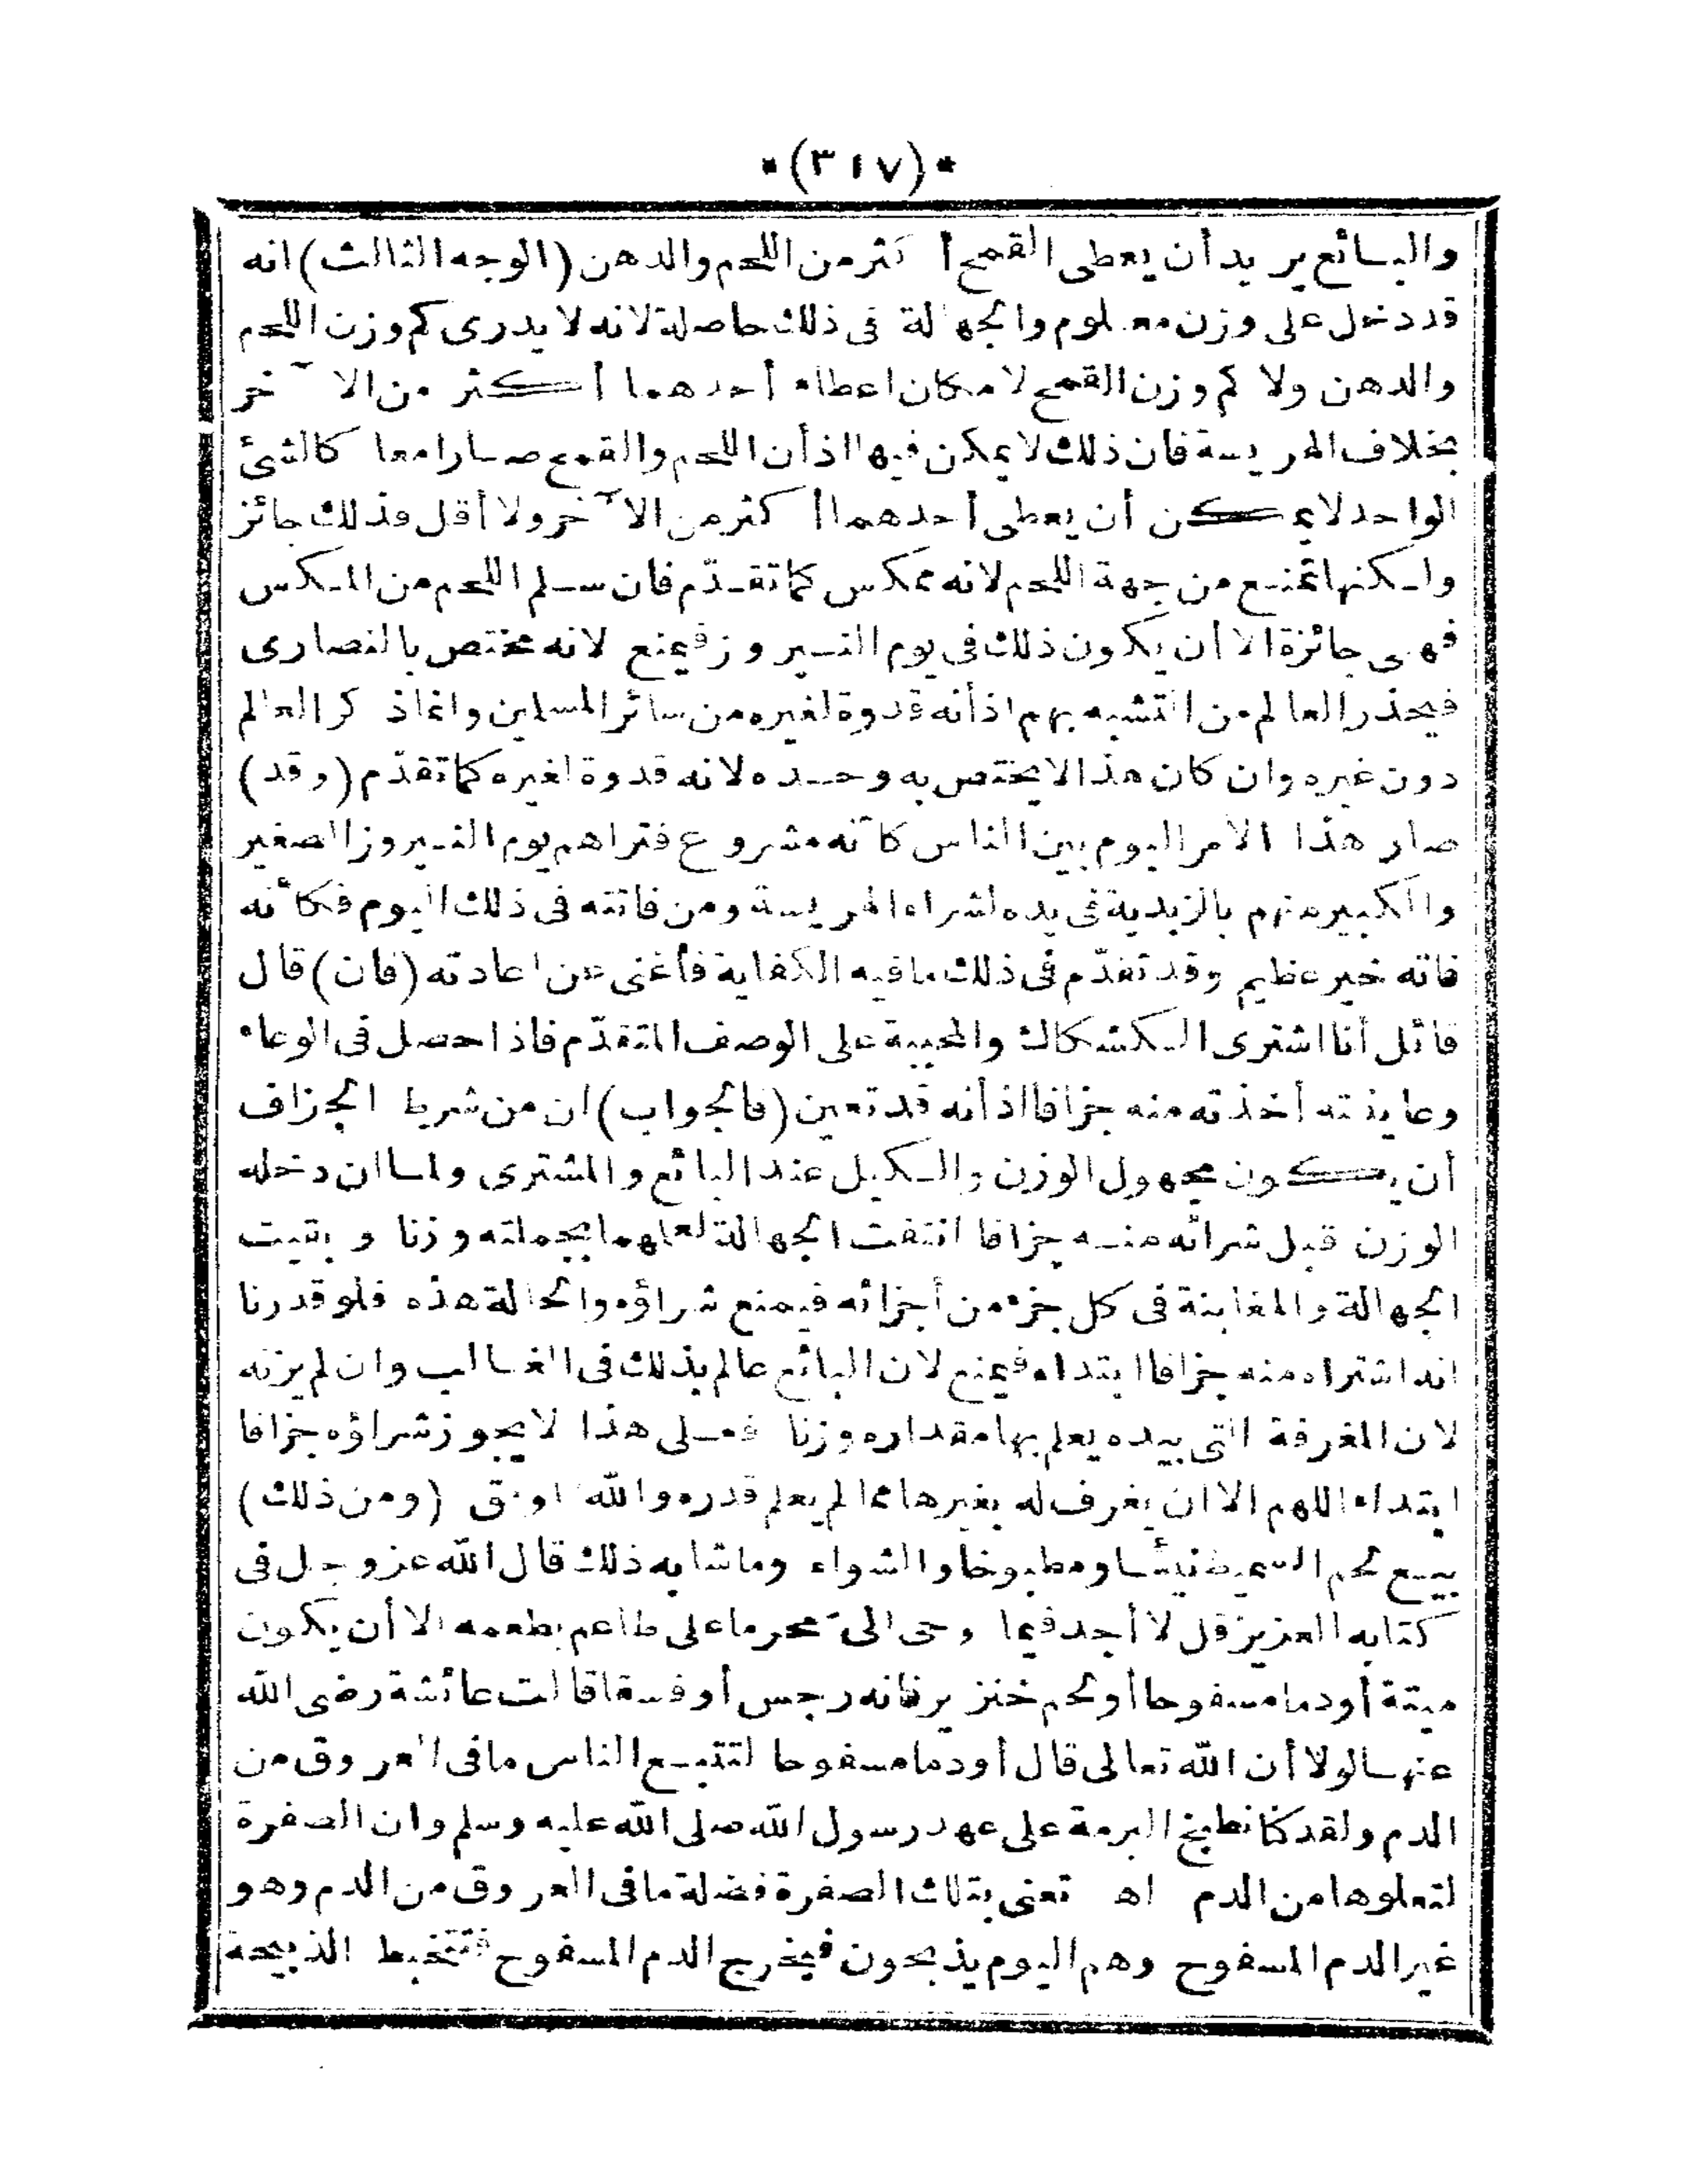 *(٣١٧)*
والبائع يريد أن يعطى القمح أكثر من اللحم والدهن (الوجه الثالث) انه
قد دخل على وزن معلوم والجهالة فى ذلك حاصلة لانه لا يدرى كم وزن اللحم
والدهن ولا كم وزن القمح لامكان اعطاء أحدهما أكثر من الآخر
بخلاف الهريسة فان ذلك لا يمكن فيها اذ أن اللحم والقمح صارا معا كالشئ
الواحد لا يمكن أن يعطى أحدهما أكثر من الآخر ولا أقل فذلك جائز
ولكنها تمنع من جهة اللحم لانه ممكس كما تقدّم فان سلم اللحم من المكس
فهى جائزة الا أن يكون ذلك فى يوم النيروز فيمنع لانه مختص بالنصارى
فيحذر العالم من التشبه بهم اذ أنه قدوة لغيره من سائر المسلمين وانما ذكر العالم
دون غيره وان كان هذا لا يختص به وحده لانه قدوة لغيره كما تقدّم (وقد)
صار هذا الأمر اليوم بين الناس كأنه مشروع فتراهم يوم النيروز الصغير
والكبير منهم بالزبدية فى يده لشراء الهريسة ومن فاتته فى ذلك اليوم فكأنه
فاته خير عظيم وقد تقدّم فى ذلك ما فيه الكفاية فأغنى عن اعادته (فان) قال
قائل أنا اشترى الكشكاك والمحببة على الوصف المتقدّم فاذا حصل فى الوعاء
وعاينته أخذته منه جزافا اذ أنه قد تعين (فالجواب) ان من شرط الجزاف
أن يكون مجهول الوزن والكيل عند البائع والمشترى ولما ان دخله
الوزن قبل شرائه منه جزافا انتفت الجهالة لعلمهما بجملته وزنا وبقيت
الجهالة والمغابنة فى كل جزء من أجزائه فيمنع شراؤه والحالة هذه فلو قدرنا
انه اشتراه منه جزافا ابتداء فيمنع لان البائع عالم بذلك فى الغالب وان لم يزنه
لان المغرفة التى بيده يعلم بها مقداره وزنا فعلى هذا لا يجوز شراؤه جزافا
ابتداء اللهم الا ان يغرف له بغيرها مما لم يعلم قدره والله الموفق (ومن ذلك)
بيع لحم السميط نيئا ومطبوخا والشواء وما شابه ذلك قال الله عز وجل فى
كتابه العزيز قل لا أجد فيما أوحى الىّ محرما على طاعم يطعمه الا أن يكون
ميتة أو دما مسفوحا أو لحم خنزير فانه رجس أو فسقا قالت عائشة رضى الله
عنها لولا أن الله تعالى قال أو دما مسفوحا لتتبع الناس ما فى العروق من
الدم ولقد كنا نطبخ البرمة على عهد رسول الله صلى الله عليه وسلم وان الصفرة
لتعلوها من الدم اه تعنى بتلك الصفرة فضلة ما فى العروق من الدم وهو
غير الدم المسفوح وهم اليوم يذبحون فيخرج الدم المسفوح فتتخبط الذبيحة